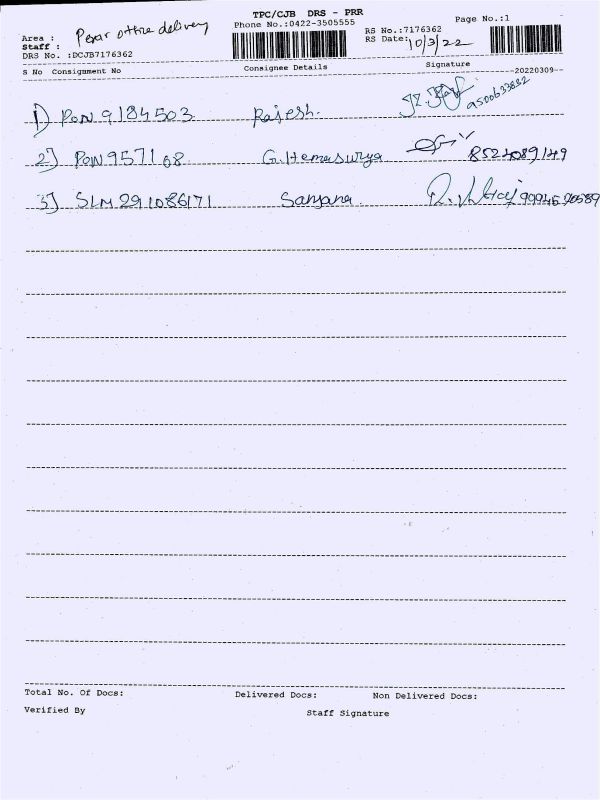 TPC/CJB DRS - PRR
Phone No.:0422-3505555
Page No.:1
Area : Peor office delivery
Staff :
DRS No. :DCJB7176362
RS No.:7176362
RS Date: 10/3/22
S No Consignment No Consignee Details Signature --20220309--
1) PON 9184503 Rajesh. 9500633882
2) PON 957168 G. Hemasurya 8524089149
3) SLM 291086171 Sanjana
Total No. Of Docs: Delivered Docs: Non Delivered Docs:
Verified By Staff Signature